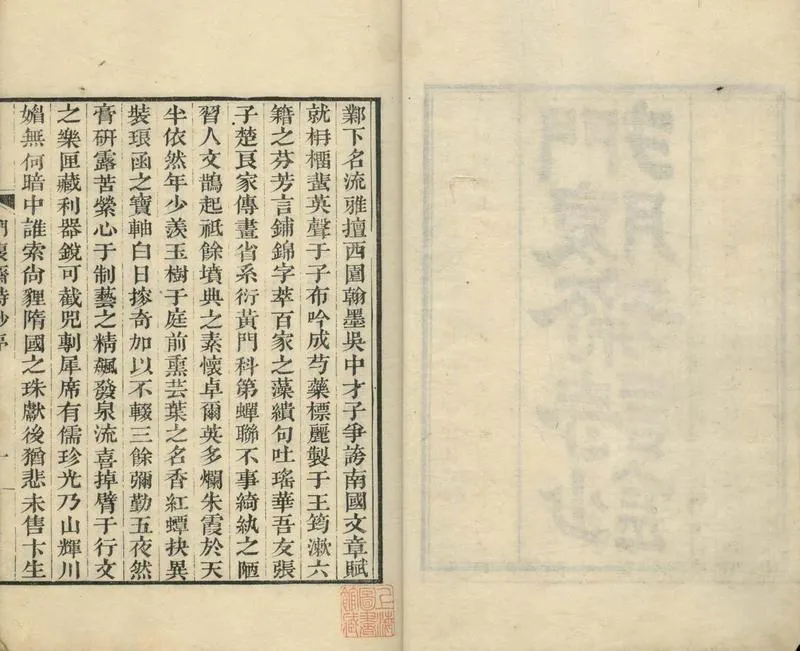 鄴下名流雅擅西園翰墨吳中才子爭誇南國文章賦
就枏榴蜚英聲于子布吟成芍藥標麗製于王筠漱六
籍之芬芳言鋪錦字萃百家之藻繢句吐瑤華吾友張
子楚艮家傳畫省系衍黃門科第蟬聯不事綺紈之陋
習人文鵲起祇餘墳典之素懷卓爾英多爛朱霞於天
半依然年少羨玉樹于庭前熏芸葉之名香紅蟫抉異
裝琅函之寶軸白日摉奇加以不輟三餘彌勤五夜然
膏研露苦縈心于制藝之精飆發泉流喜掉臂于行文
之樂匣藏利器鋭可截兕剸犀席有儒珍光乃山輝川
媚無何暗中誰索尙貍隋國之珠獻後猶悲未售卞生
門裒齋詩鈔序
一
上海圖書館藏